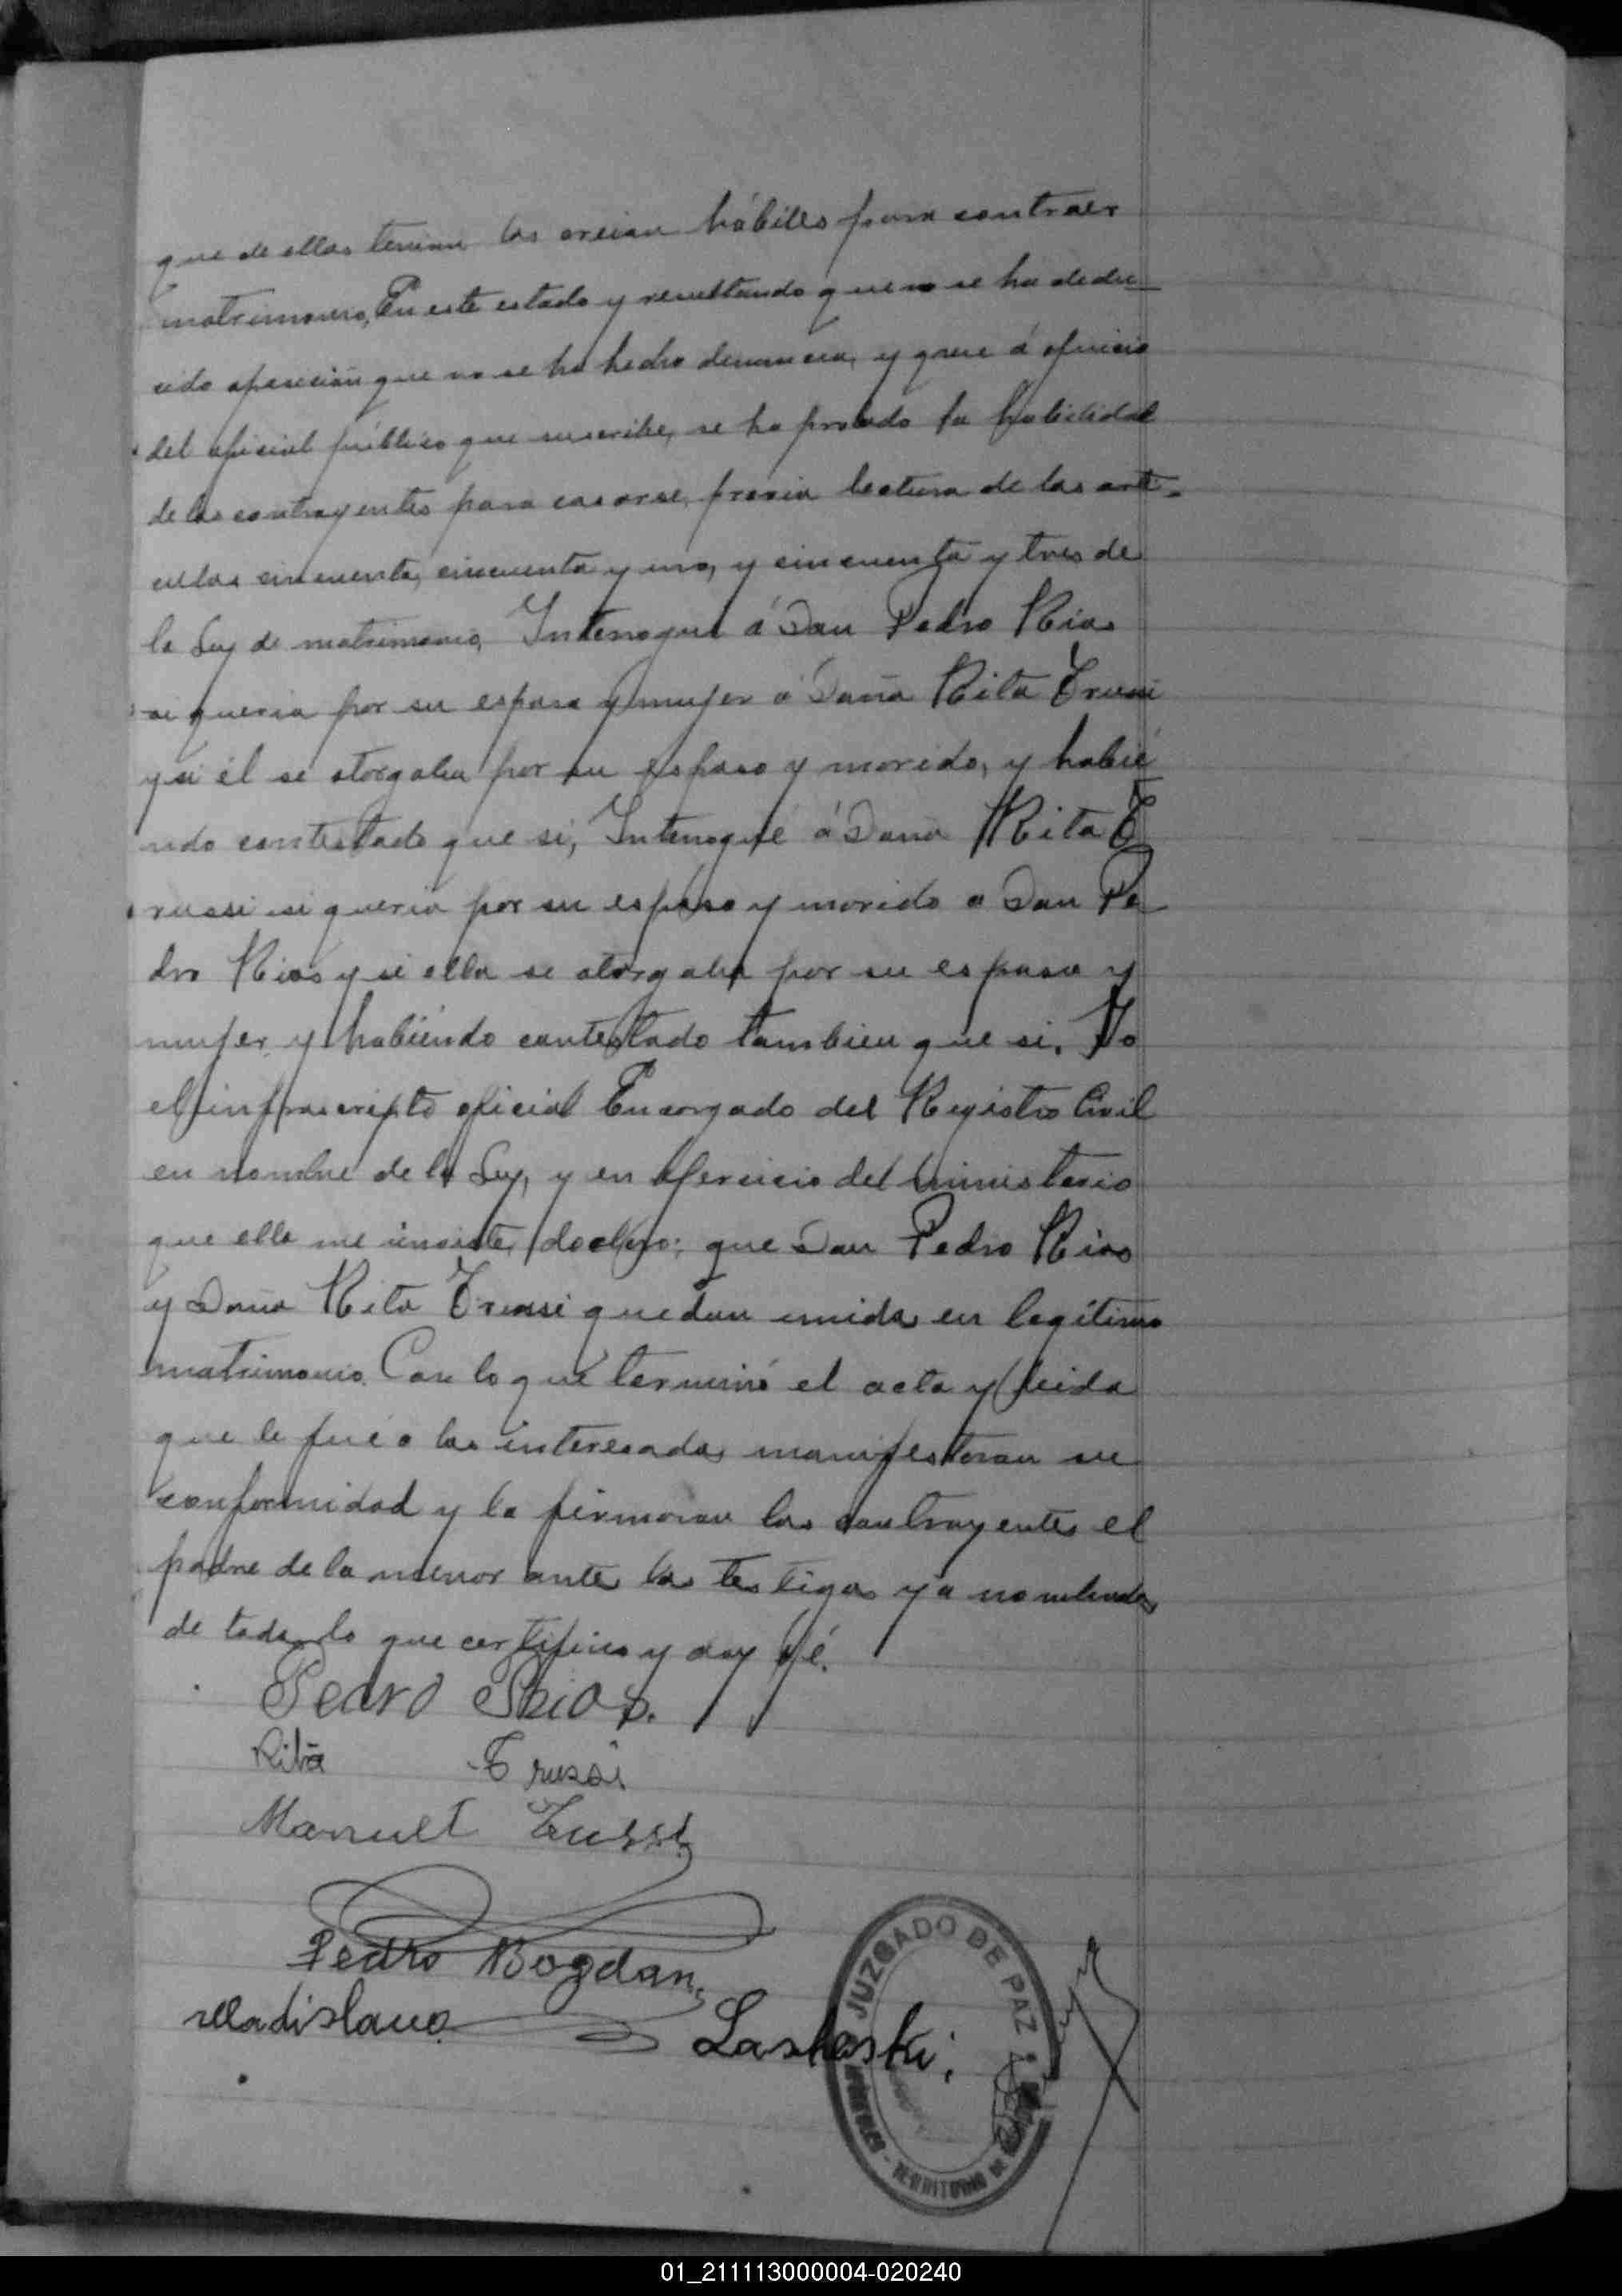 que de ellos tenian los creian hábiles para contraer
matrimonio, En este estado y resultando que no se ha dedu
cido oposición que no se ha hecho denuncia, y que á ofinicio
del oficial público que suscribe, se ha probado la habilidad
de los contrayentes para casarse, previa lectura de los arti-
culos cincuenta, cincuenta y uno, y cincuenta y tres de
la Ley de matrimonio, Interrogué á Don Pedro Rios
si queria por su esposa y mujer á Doña Rita Trussi
y si él se otorgaba por su esposo y marido, y habié
ndo contestado que si, Interrogué á Doña Rita T
russi si queria por su esposo y marido a Don Pe
dro Rios y si ella se otorgaba por su esposa y
mujer y habiendo contestado tambien que si. Yo
el infrascripto oficial Encargado del Registro Civil
en nombre de la Ley, y en ejercicio del ministerio
que ella me inviste, declaro: que Don Pedro Rios
y Doña Rita Trussi quedan unidos en legítimo
matrimonio. Con lo que terminó el acta y leida
que le fué a los interesados manifestaron su
conformidad y la firmaron los contrayentes el
padre de la menor ante los testigos ya nombrados
de todo lo que certifico y doy fé.
Pedro Rios.
Rita Trussi
Manuel Trussi
Pedro Bogdan
Wladislauo Laskoski
JUZGADO DE PAZ
TERRITORIO DE
01_211113000004-020240